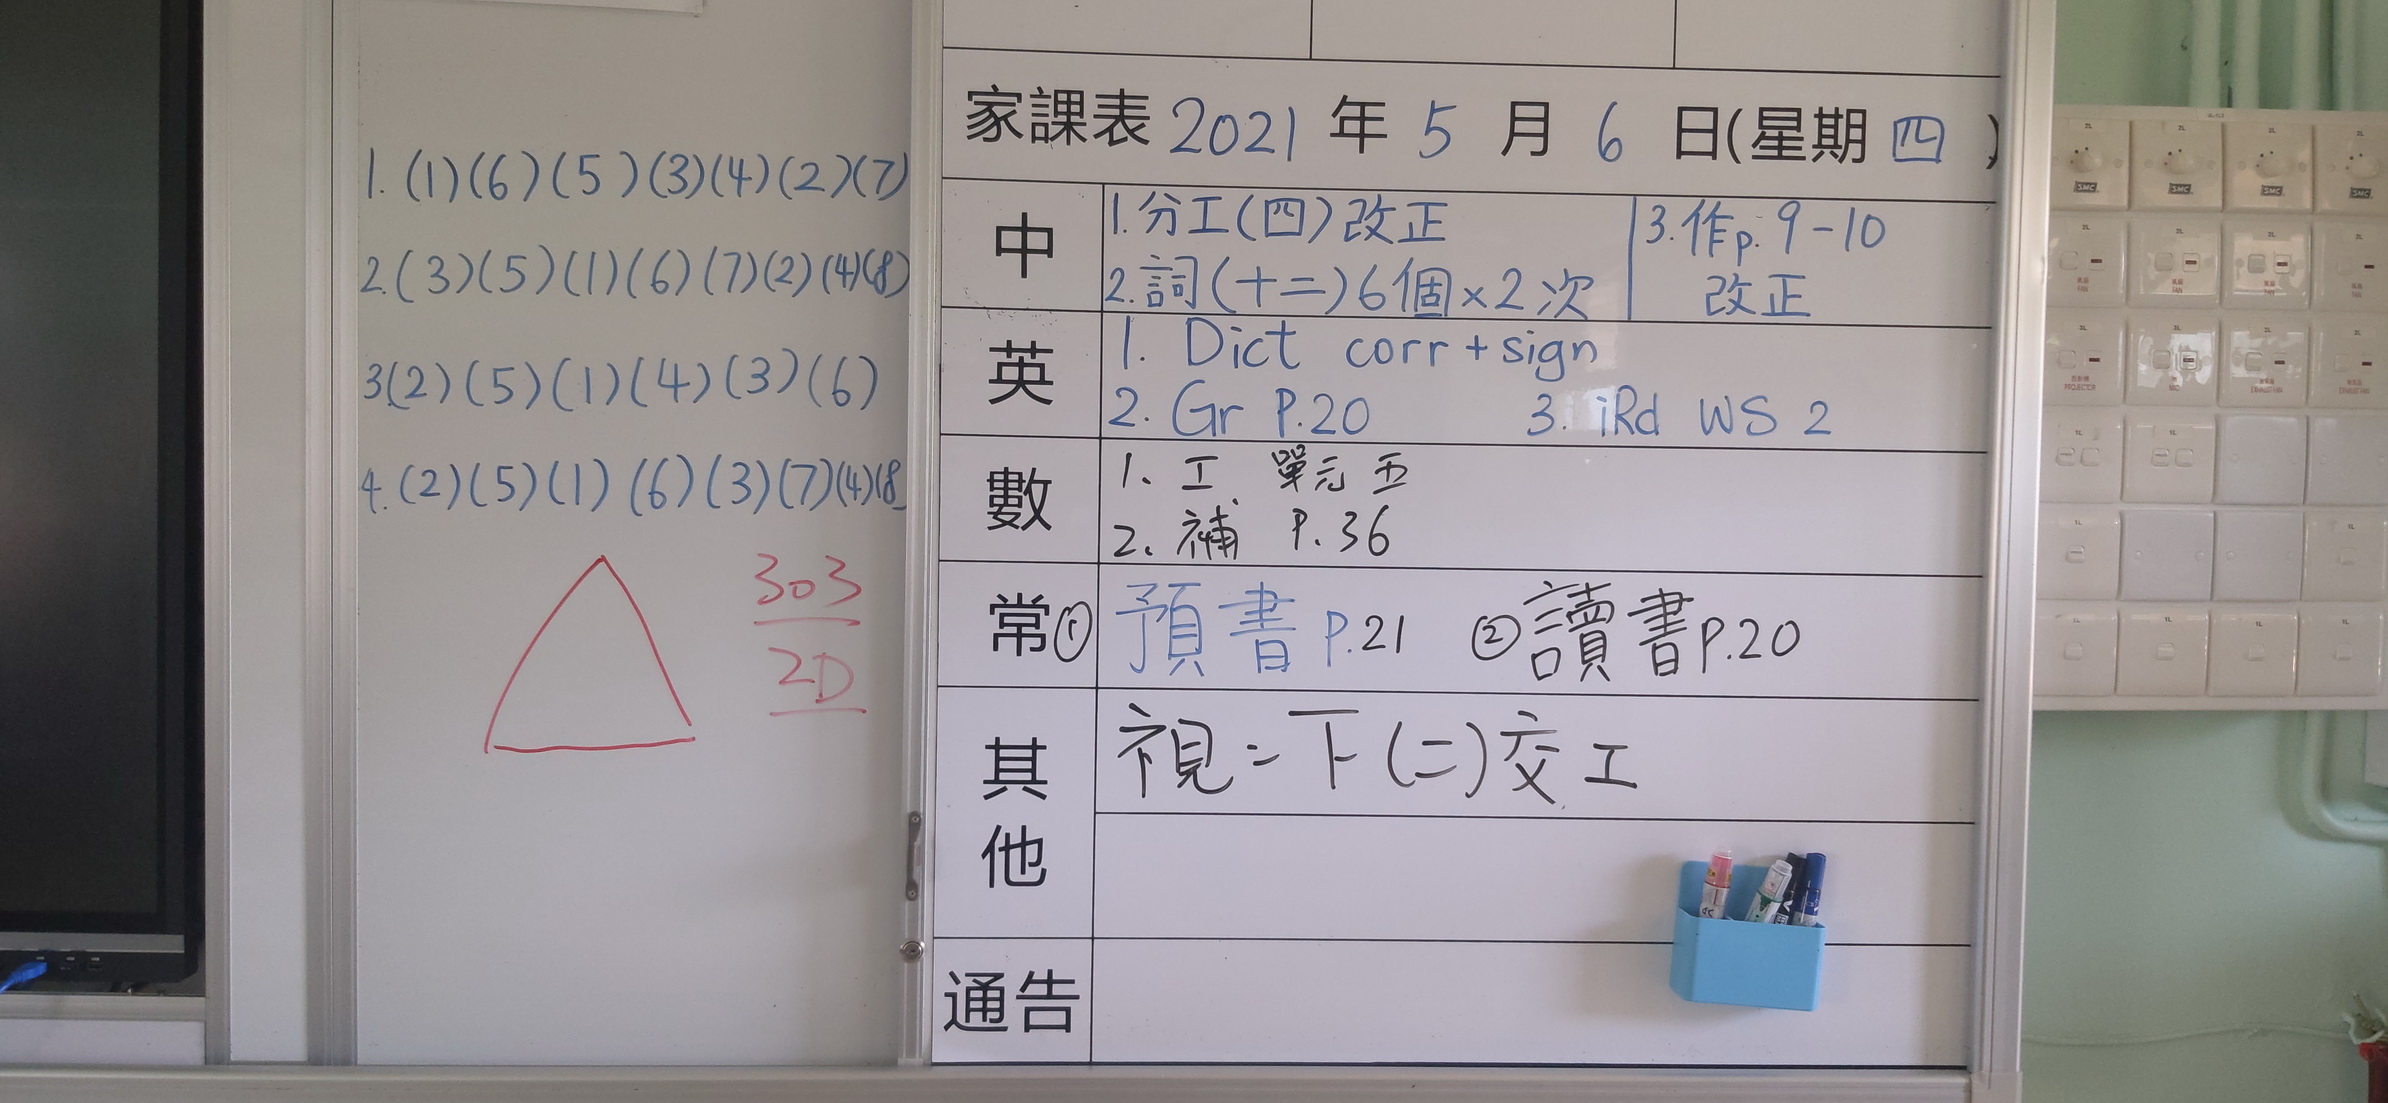 1. (1)(6)(5)(3)(4)(2)(7)
2.(3)(5)(1)(6)(7)(2)(4)(8)
3(2)(5)(1)(4)(3)(6)
4.(2)(5)(1)(6)(3)(7)(4)(8
303
2D
家課表 2021 年 5 月 6 日(星期 四 )
中
1.分工(四)改正
2.詞(十二)6個×2次
3.作p.9-10
改正
英
1. Dict corr + sign
2. Gr P.20 3. iRd WS 2
數
1. 工 單元五
2. 補 P.36
常 ① 預書 P.21 ② 讀書 P.20
其他
視=下(二)交工
通告
SMC SMC SMC SMC
2L 2L 2L 2L
FAN FAN FAN FAN
PROJECTOR
1L 1L
1L 1L
1L 1L 1L 1L